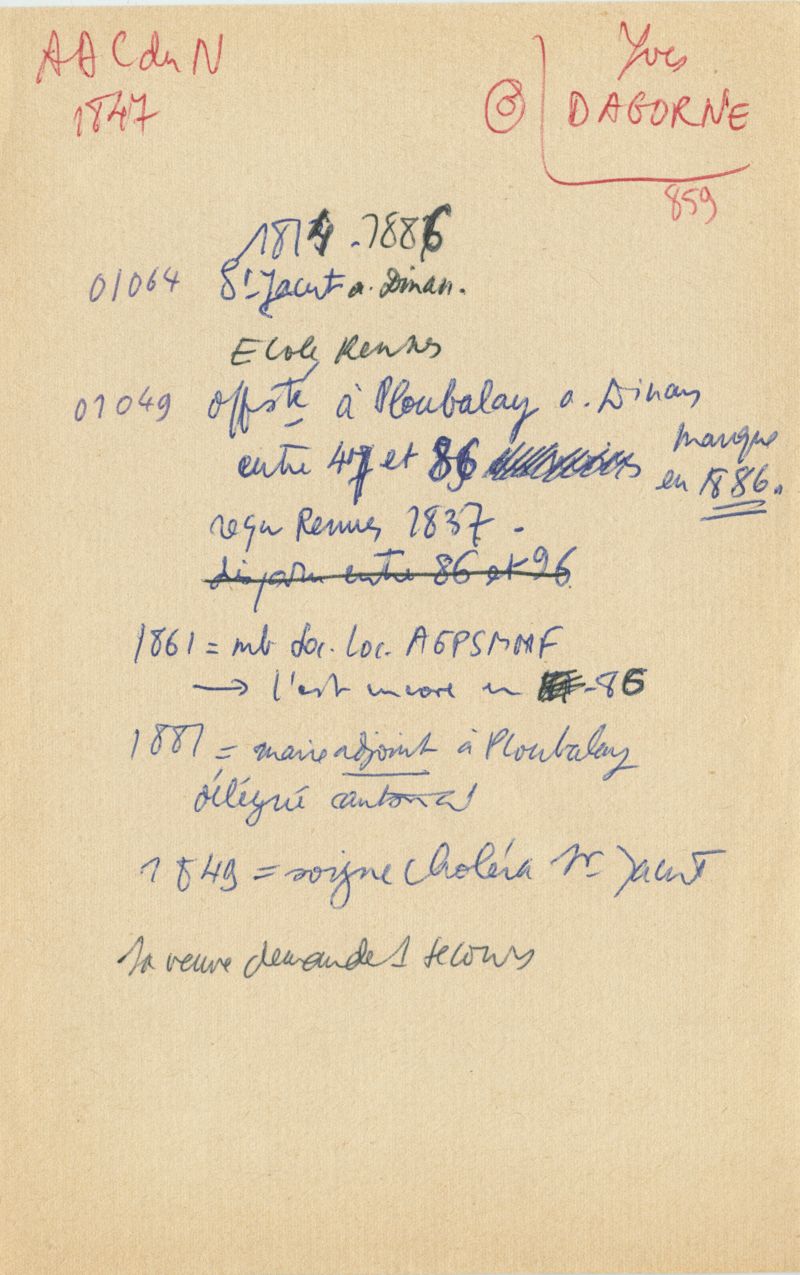 AACduN
1847
Yves
DAGORNE
859
1814-1886
01064 St-Jacut a. Dinan.
Ecole Rennes
01049 offsté à Ploubalay a. Dinan
entre 47 et 86
manque
en 1886.
reçu Rennes 1837 -
disparu entre 86 et 96
1861 = mb soc. loc. AEPSMMF
→ l'est encore en -86
1881 = maire adjoint à Ploubalay
délégué cantonal
1849 = soigne choléra St Jacut
Sa veuve demande 1 secours